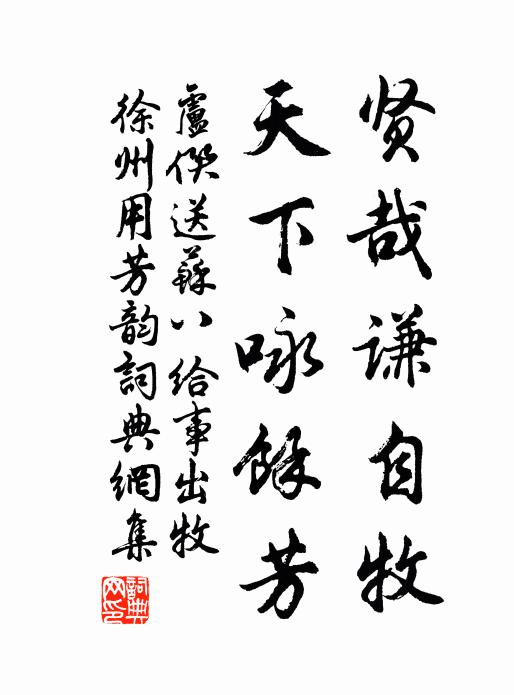 贤哉谦自牧
天下咏餘芳
盧僎送蘇八给事出牧
徐州用芳韵詞典網集
詞典网印